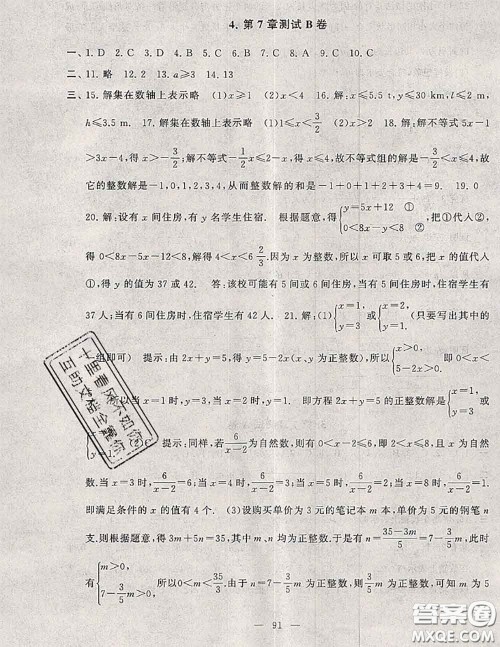 4. 第7章测试B卷
一、1. D 2. D 3. B 4. C 5. B 6. C 7. C 8. A 9. C 10. C
二、11. 略 12. 2 13. a≥3 14. 13
三、15. 解集在数轴上表示略 (1)x≥1 (2)x<4 16. 解:x≤5.5 t,y≤30 km,l≤2 m,
h≤3.5 m. 17. 解集在数轴上表示略 (1)1≤x<3/2 (2)x≥2 18. 解:解不等式5x-1
>3x-4,得x>-3/2;解不等式-1/3x≤2/3-x,得x≤4,故不等式组的解是-3/2<x≤4,故
它的整数解是-1,0,1,2,3,4,从而整数解的和是-1+0+1+2+3+4=9. 19. 0
20. 解:设有x间住房,有y名学生住宿. 根据题意,得{y=5x+12 ① 0<8x-y<8 ②,把①代入②,
得0<8x-5x-12<8. 解得4<x<6 2/3. 因为x为整数,所以x可取5或6,把x的值代人
①,得y的值为37或42. 答:该校可能有5间或6间住房,当有5间住房时,住宿学生有
37人;当有6间住房时,住宿学生有42人. 21. 解:(1){x=1, y=3 或{x=2, y=1 (只要写出其中的
一组即可) 提示:由2x+y=5,得y=5-2x(x、y为正整数),所以{x>0, 5-2x>0, 即0<x<
以当x=1时,y=3;当x=2时,y=1. 即方程2x+y=5的正整数解是{x=1, y=3 或
{x=2, y=1 提示:同样,若6/(x-2)为自然数,则有:0<x-2≤6,即2<x≤8,且x为整
数. 当x=3时,6/(x-2)=6;当x=4时,6/(x-2)=3;当x=5时,6/(x-2)=2;当x=8时,6/(x-2)=1.
即满足条件的x的值有4个. (3)设购买单价为3元的笔记本m本,单价为5元的钢笔n
支,则根据题意,得3m+5n=35,其中m、n均为正整数. 于是有n=(35-3m)/5=7-3/5m,此时
有{m>0, 7-3/5m>0, 所以0<m<35/3. 由于n=7-3/5m为正整数,则3/5m为正整数,可知m为5
— 91 —
十里春风不如你
互助文档全靠你
答案圈
MXQE.COM